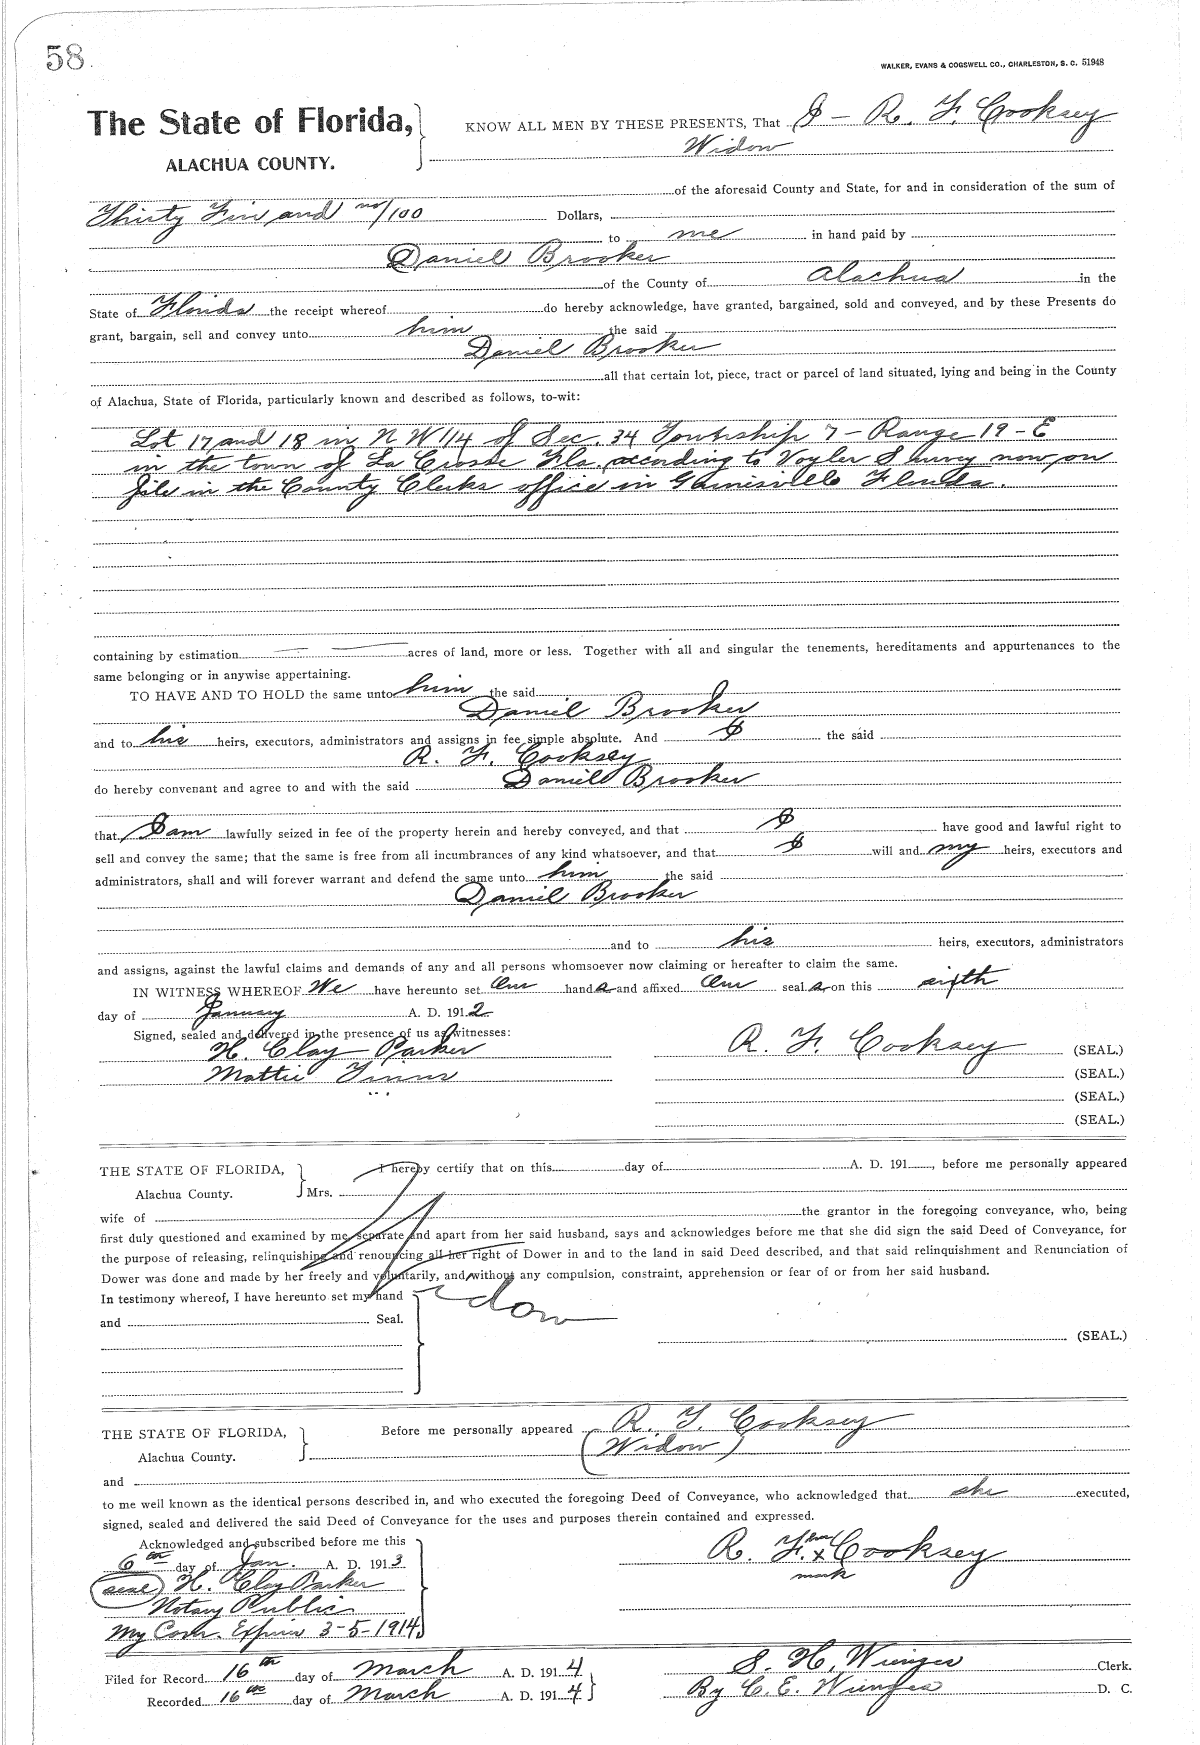 58
WALKER, EVANS & COGSWELL CO., CHARLESTON, S. C. 51948
The State of Florida,
ALACHUA COUNTY.
KNOW ALL MEN BY THESE PRESENTS, That I - R. F. Cooksey
Widow
of the aforesaid County and State, for and in consideration of the sum of
Thirty Five and no/100 Dollars,
to me in hand paid by
Daniel Brooker
of the County of Alachua in the
State of Florida the receipt whereof do hereby acknowledge, have granted, bargained, sold and conveyed, and by these Presents do
grant, bargain, sell and convey unto him the said
Daniel Brooker
all that certain lot, piece, tract or parcel of land situated, lying and being in the County
of Alachua, State of Florida, particularly known and described as follows, to-wit:
Lot 17 and 18 in N W 1/4 of Sec. 34 Township 7 - Range 19 - E
in the town of La Crosse Fla. according to Voyler Survey now on
file in the County Clerks office in Gainesville Florida.
containing by estimation acres of land, more or less. Together with all and singular the tenements, hereditaments and appurtenances to the
same belonging or in anywise appertaining.
TO HAVE AND TO HOLD the same unto him the said
Daniel Brooker
and to his heirs, executors, administrators and assigns in fee simple absolute. And I the said
R. F. Cooksey
do hereby convenant and agree to and with the said Daniel Brooker
that I am lawfully seized in fee of the property herein and hereby conveyed, and that I have good and lawful right to
sell and convey the same; that the same is free from all incumbrances of any kind whatsoever, and that I will and my heirs, executors and
administrators, shall and will forever warrant and defend the same unto him the said
Daniel Brooker
and to his heirs, executors, administrators
and assigns, against the lawful claims and demands of any and all persons whomsoever now claiming or hereafter to claim the same.
IN WITNESS WHEREOF We have hereunto set Our hand s and affixed Our seal s on this sixth
day of January A. D. 191 2
Signed, sealed and delivered in the presence of us as witnesses:
H. Clay Parker
R. F. Cooksey (SEAL.)
Mattie
(SEAL.)
(SEAL.)
(SEAL.)
THE STATE OF FLORIDA,
Alachua County.
I hereby certify that on this day of A. D. 191 , before me personally appeared
Mrs.
wife of the grantor in the foregoing conveyance, who, being
first duly questioned and examined by me separate and apart from her said husband, says and acknowledges before me that she did sign the said Deed of Conveyance, for
the purpose of releasing, relinquishing and renouncing all her right of Dower in and to the land in said Deed described, and that said relinquishment and Renunciation of
Dower was done and made by her freely and voluntarily, and without any compulsion, constraint, apprehension or fear of or from her said husband.
In testimony whereof, I have hereunto set my hand
Widow
and Seal.
(SEAL.)
THE STATE OF FLORIDA,
Alachua County.
Before me personally appeared R. F. Cooksey
(Widow)
and
to me well known as the identical persons described in, and who executed the foregoing Deed of Conveyance, who acknowledged that she executed,
signed, sealed and delivered the said Deed of Conveyance for the uses and purposes therein contained and expressed.
Acknowledged and subscribed before me this
6th day of Jan. A. D. 191 3
R. F. her x Cooksey
mark
(seal) H. Clay Parker
Notary Public
My Com. Expires 3-5-1914
Filed for Record 16th day of March A. D. 191 4
S. H. Wienges Clerk.
Recorded 16th day of March A. D. 191 4
By C. E. Wienges D. C.